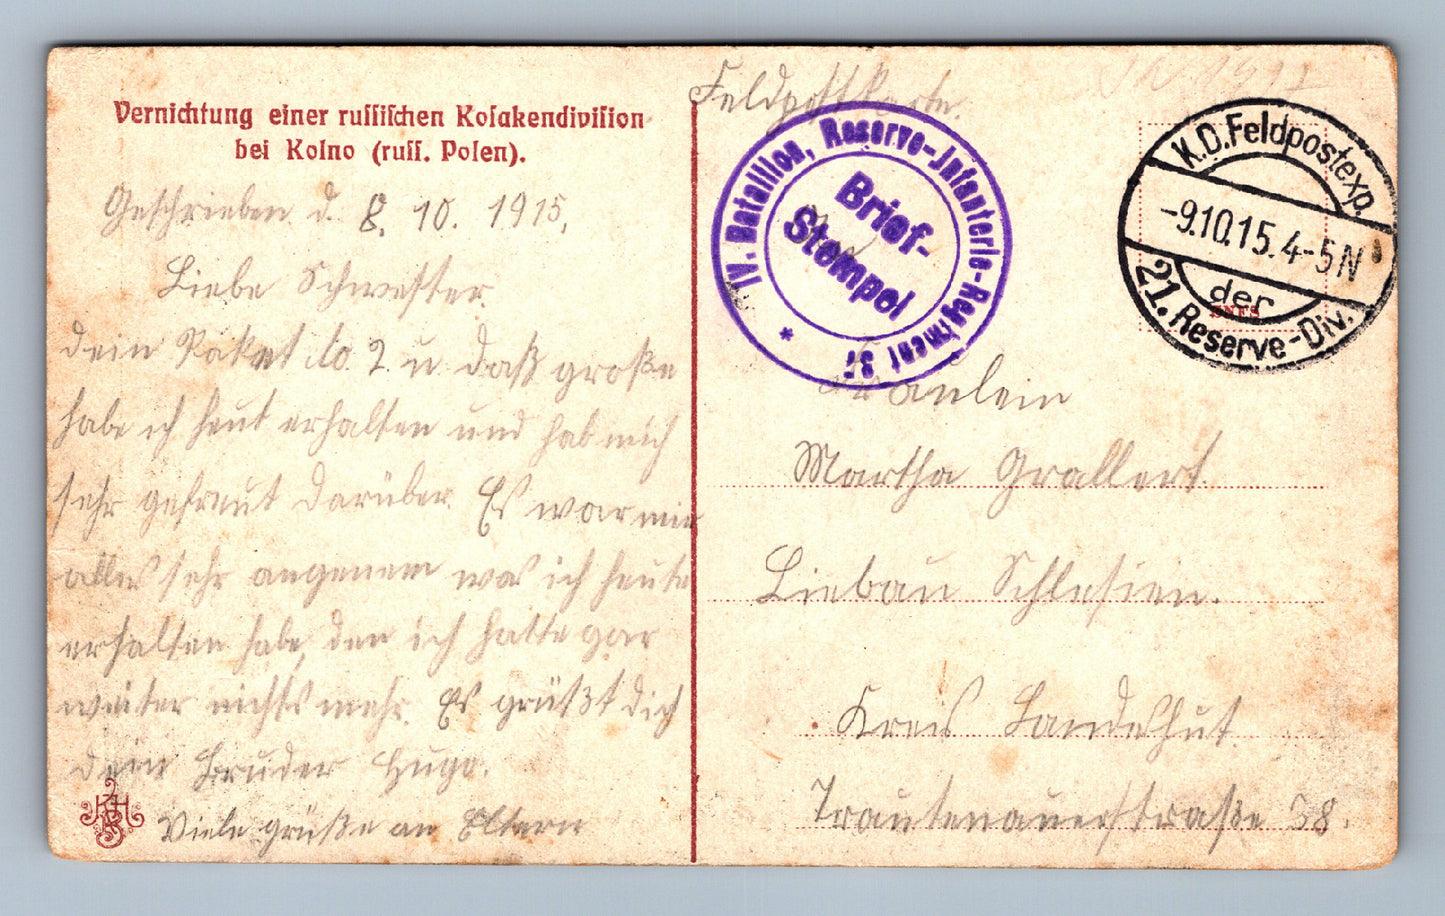 Vernichtung einer russischen Kosakendivision
bei Kolno (russ. Polen).
Geschrieben d. 8. 10. 1915,
Liebe Schwester
dein Paket No 2 u daß große
habe ich heut erhalten und hab mich
sehr gefreut darüber. Es war mir
alles sehr angenem was ich heute
erhalten habe, den ich hatte gar
weiter nichts mehr. Es grüßt dich
dein Bruder Hugo.
Viele grüße an Eltern
Feldpostkarte.
IV. Bataillon, Reserve-Infanterie-Regiment 37
*
Brief-
Stempel
K.D. Feldpostexp.
-9.10.15.4-5N
der
21. Reserve-Div.
Fräulein
Martha Grallert.
Liebau Schlesien.
Kreis Landeshut.
Trautenauerstraße 38.